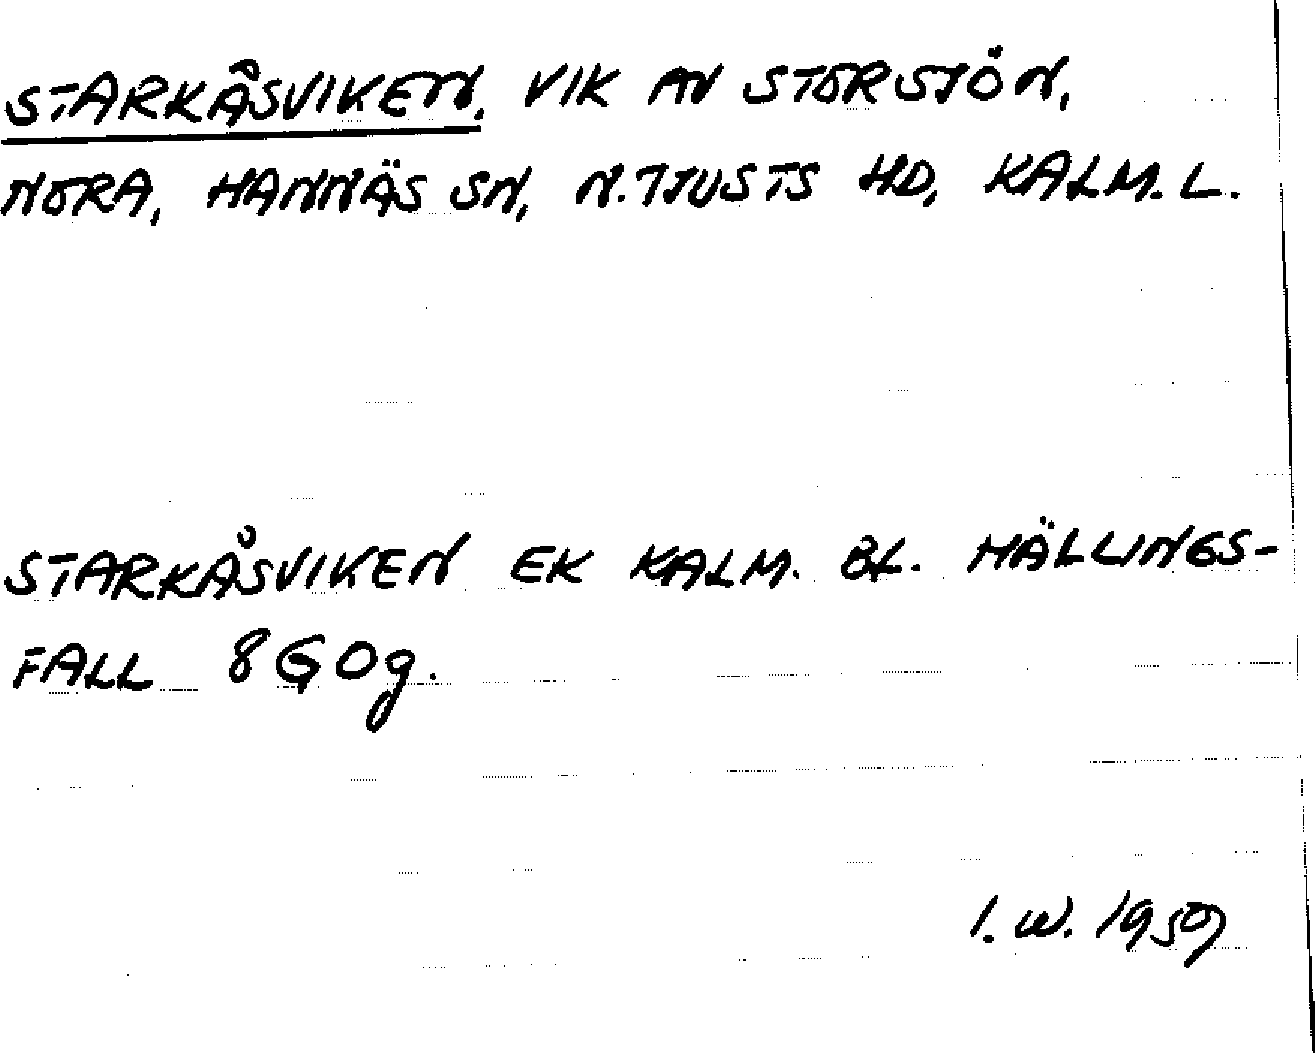 STARKÅSVIKEN, VIK AV STORSJÖN,
NORA, HANNÄS SN, N. TJUSTS HD, KALM. L.
STARKÅSVIKEN EK KALM. BL. HÄLLINGS-
FALL 8G0g.
I. W. 1959